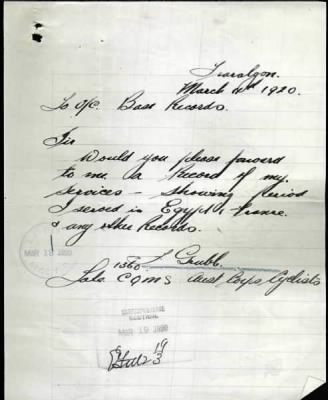 Traralgon.
March 1920.
To O/C. Base Records.
Sir
Would you please forward
to me a Record of my
services – showing period
I served in Egypt & France.
& any other Records.
1360 Grubb.
Late C.Q.M.S. Aust Corps Cyclists
MAR 19 1920
19/3